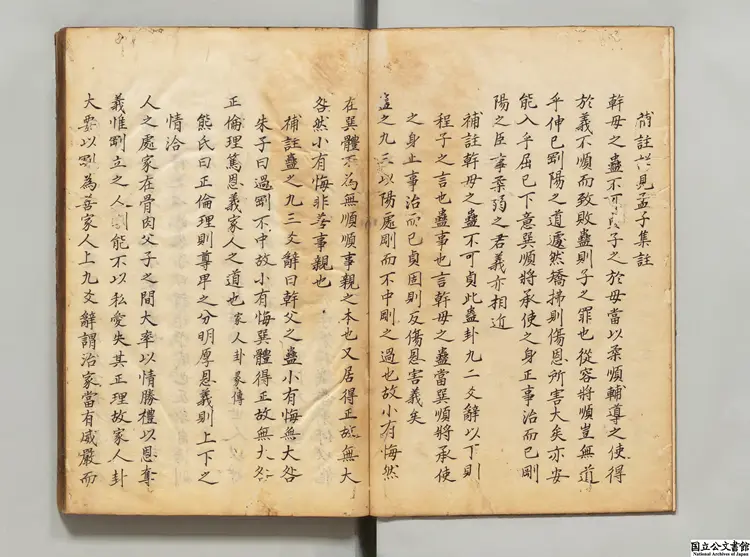 補註並見孟子集註
幹母之蠱不可貞子之於母當以柔順輔導之使得
於義不順而致敗蠱則子之罪也從容將順豈無道
乎伸己剛陽之道遽然矯拂則傷恩所害大矣亦安
能入乎屈己下意巽順將承使之身正事治而已剛
陽之臣事柔弱之君義亦相近
補註幹母之蠱不可貞此蠱卦九二爻辭以下則
程子之言也蠱事也言幹母之蠱當巽順將承使
之身正事治而已貞固則反傷恩害義矣
蠱之九三以陽處剛而不中剛之過也故小有悔然
在巽體不為無順順事親之本也又居得正故無大
咎然小有悔非善事親也
補註蠱之九三爻辭曰幹父之蠱小有悔無大咎
朱子曰過剛不中故小有悔巽體得正故無大咎
正倫理篤恩義家人之道也家人卦彖傳
熊氏曰正倫理則尊卑之分明厚恩義則上下之
情洽
人之處家在骨肉父子之間大率以情勝禮以恩奪
義惟剛立之人則能不以私愛失其正理故家人卦
大要以剛為善家人上九爻辭謂治家當有威嚴而
国立公文書館
National Archives of Japan